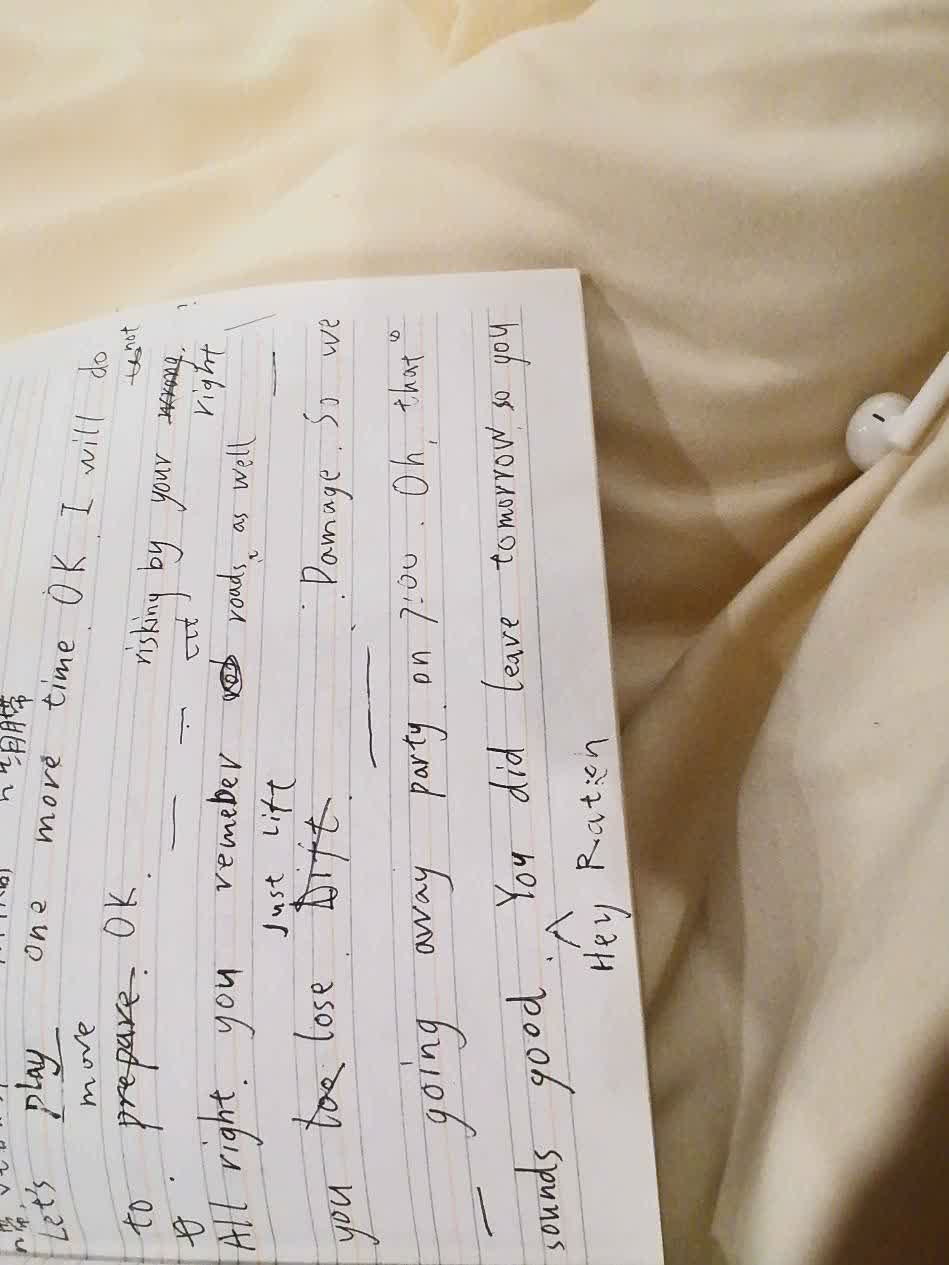 Let's play one more time. OK. I will do
move not
to prepare. OK. risking by your wrong.
right
cut
All right. you remeber roads, as well
Just Lift
you too lose. Dift. Damage. So we
going away party on 7:00. Oh, that
sounds good. You did leave tomorrow, so you
Hey Ratien